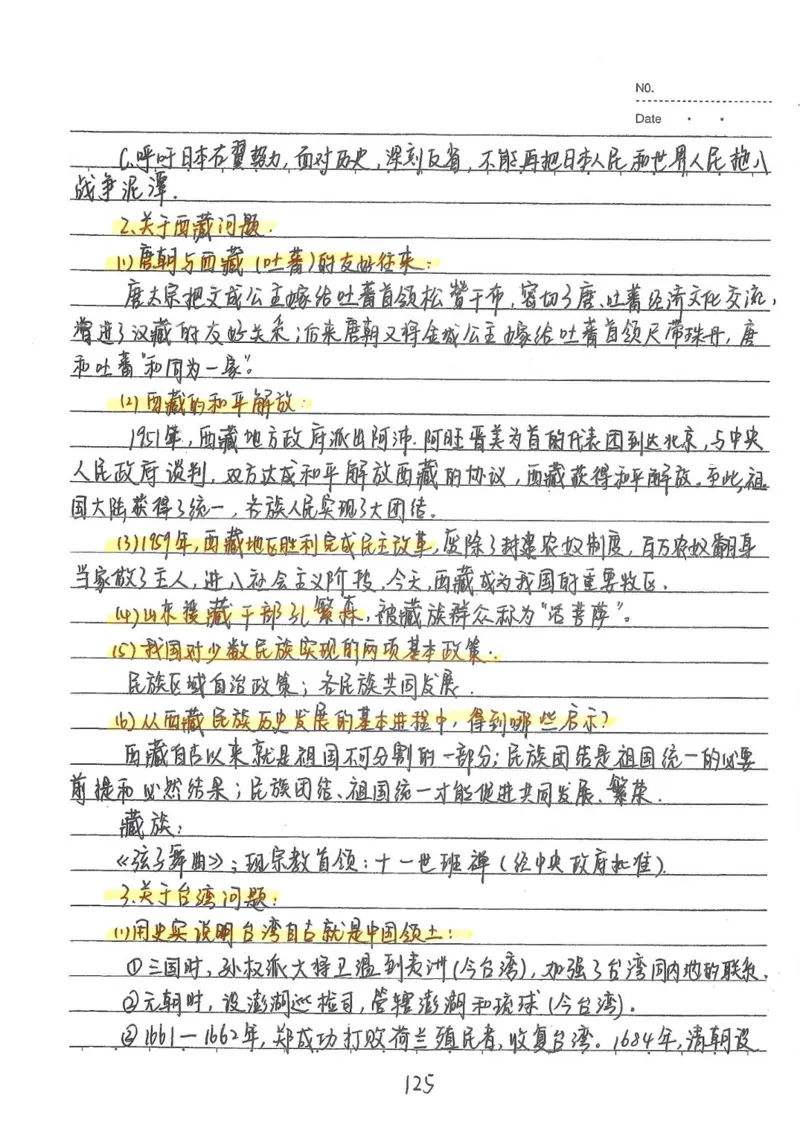 NO.
Date
C.呼吁日本右翼势力,面对历史,深刻反省,不能再把日本人民和世界人民拖入
战争泥潭.
2.关于西藏问题.
(1)唐朝与西藏(吐蕃)的友好往来:
唐太宗把文成公主嫁给吐蕃首领松赞干布,密切了唐、吐蕃经济文化交流,
增进了汉藏的友好关系;后来唐朝又将金城公主嫁给吐蕃首领尺带珠丹,唐
和吐蕃“和同为一家”。
(2)西藏的和平解放:
1951年,西藏地方政府派出阿沛·阿旺晋美为首的代表团到达北京,与中央
人民政府谈判,双方达成和平解放西藏的协议,西藏获得和平解放。至此,祖
国大陆获得了统一,各族人民实现了大团结。
(3)1959年,西藏地区胜利完成民主改革,废除了封建农奴制度,百万农奴翻身
当家做了主人,进入社会主义阶段,今天,西藏成为我国的重要牧区.
(4)山东援藏干部孔繁森,被藏族群众称为“活菩萨”。
(5)我国对少数民族实现的两项基本政策.
民族区域自治政策;各民族共同发展.
(6)从西藏民族历史发展的基本进程中,得到哪些启示?
西藏自古以来就是祖国不可分割的一部分;民族团结是祖国统一的必要
前提和必然结果;民族团结、祖国统一才能促进共同发展、繁荣.
藏族:
《弦子舞曲》;现宗教首领:十一世班禅(经中央政府批准).
3.关于台湾问题:
(1)用史实说明台湾自古就是中国领土:
①三国时,孙权派大将卫温到夷洲(今台湾),加强了台湾同内地的联系.
②元朝时,设澎湖巡检司,管辖澎湖和琉球(今台湾).
③1661—1662年,郑成功打败荷兰殖民者,收复台湾。1684年,清朝设
125